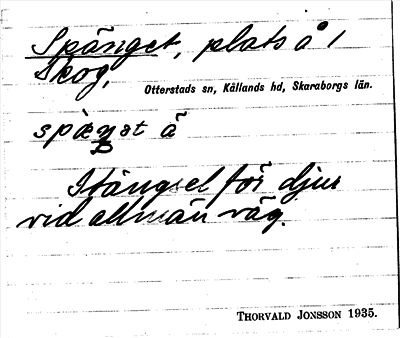 Spänget, plats å 1
Skog,
Otterstads sn, Kållands hd, Skaraborgs län.
spàŋət ä
Stängsel för djur
vid allmän väg.
THORVALD JONSSON 1935.